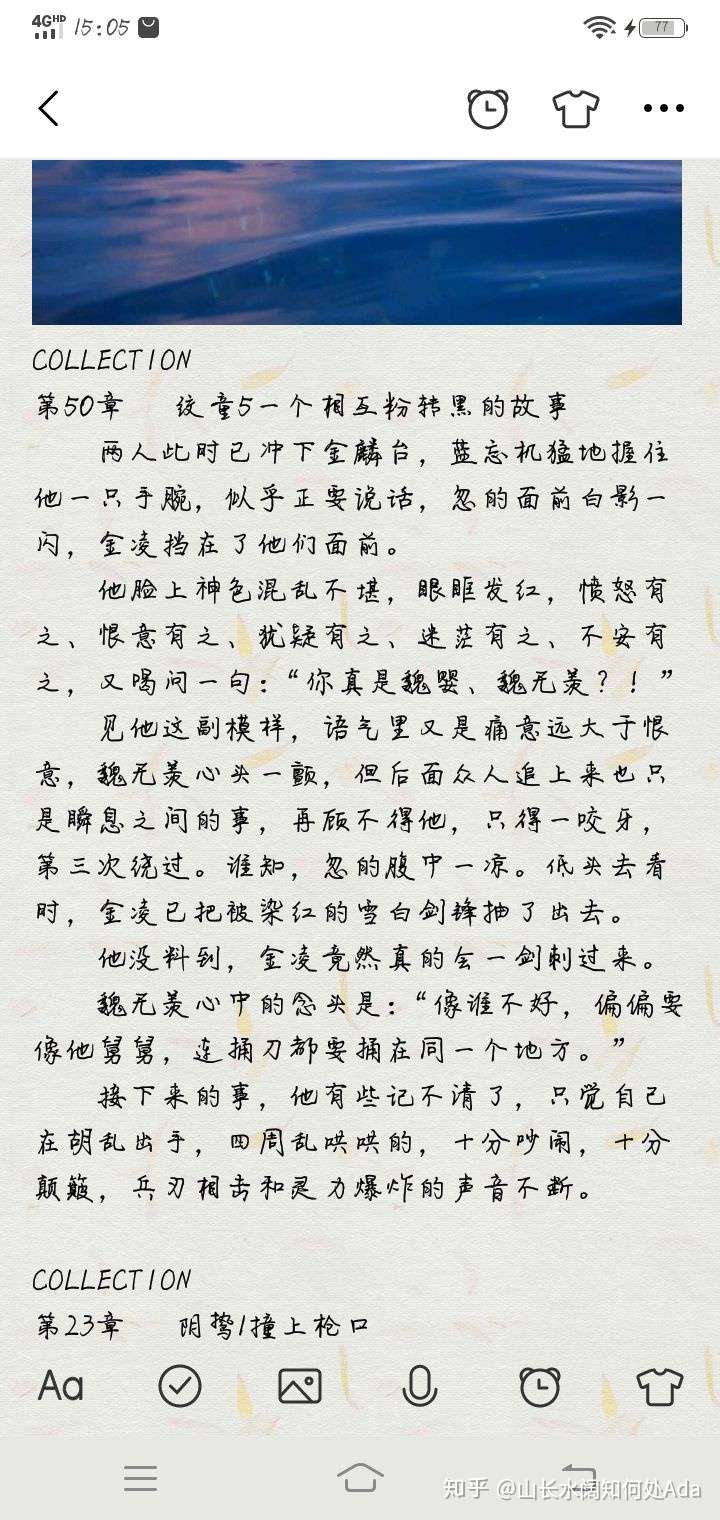 4G HD 15:05
77
COLLECTION
第50章 绞童5一个相互粉转黑的故事
两人此时已冲下金麟台，蓝忘机猛地握住
他一只手腕，似乎正要说话，忽的面前白影一
闪，金凌挡在了他们面前。
他脸上神色混乱不堪，眼眶发红，愤怒有
之、恨意有之、犹疑有之、迷茫有之、不安有
之，又喝问一句：“你真是魏婴、魏无羡？！”
见他这副模样，语气里又是痛意远大于恨
意，魏无羡心头一颤，但后面众人追上来也只
是瞬息之间的事，再顾不得他，只得一咬牙，
第三次绕过。谁知，忽的腹中一凉。低头去看
时，金凌已把被染红的雪白剑锋抽了出去。
他没料到，金凌竟然真的会一剑刺过来。
魏无羡心中的念头是：“像谁不好，偏偏要
像他舅舅，连捅刀都要捅在同一个地方。”
接下来的事，他有些记不清了，只觉自己
在胡乱出手，四周乱哄哄的，十分吵闹，十分
颠簸，兵刃相击和灵力爆炸的声音不断。
COLLECTION
第23章 阴鸷1撞上枪口
Aa
知乎 @山长水阔知何处Ada